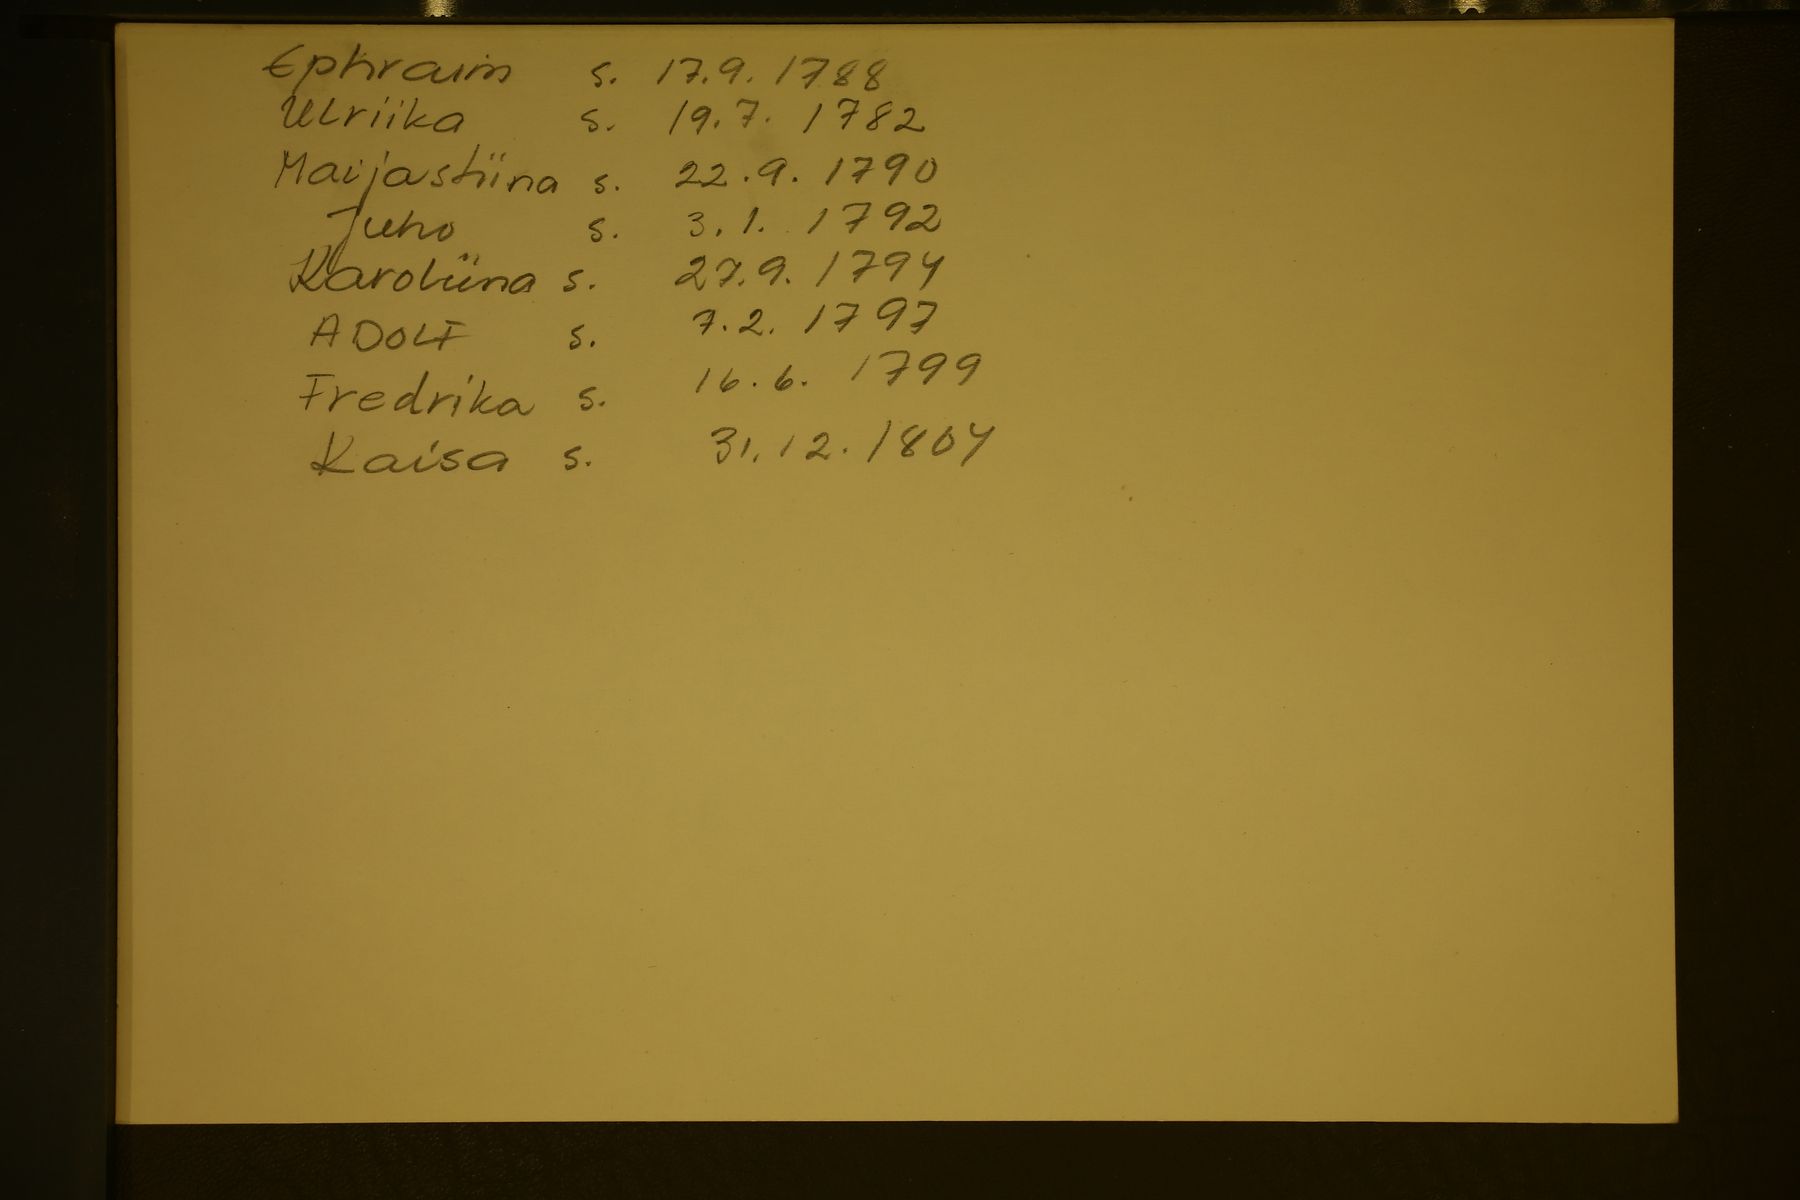 Ephraim s. 17.9. 1788
Ulriika s. 19.7. 1782
Maijastiina s. 22.9. 1790
Juho s. 3.1. 1792
Karoliina s. 27.9. 1794
ADOLF s. 7.2. 1797
Fredrika s. 16.6. 1799
Kaisa s. 31.12. 1804